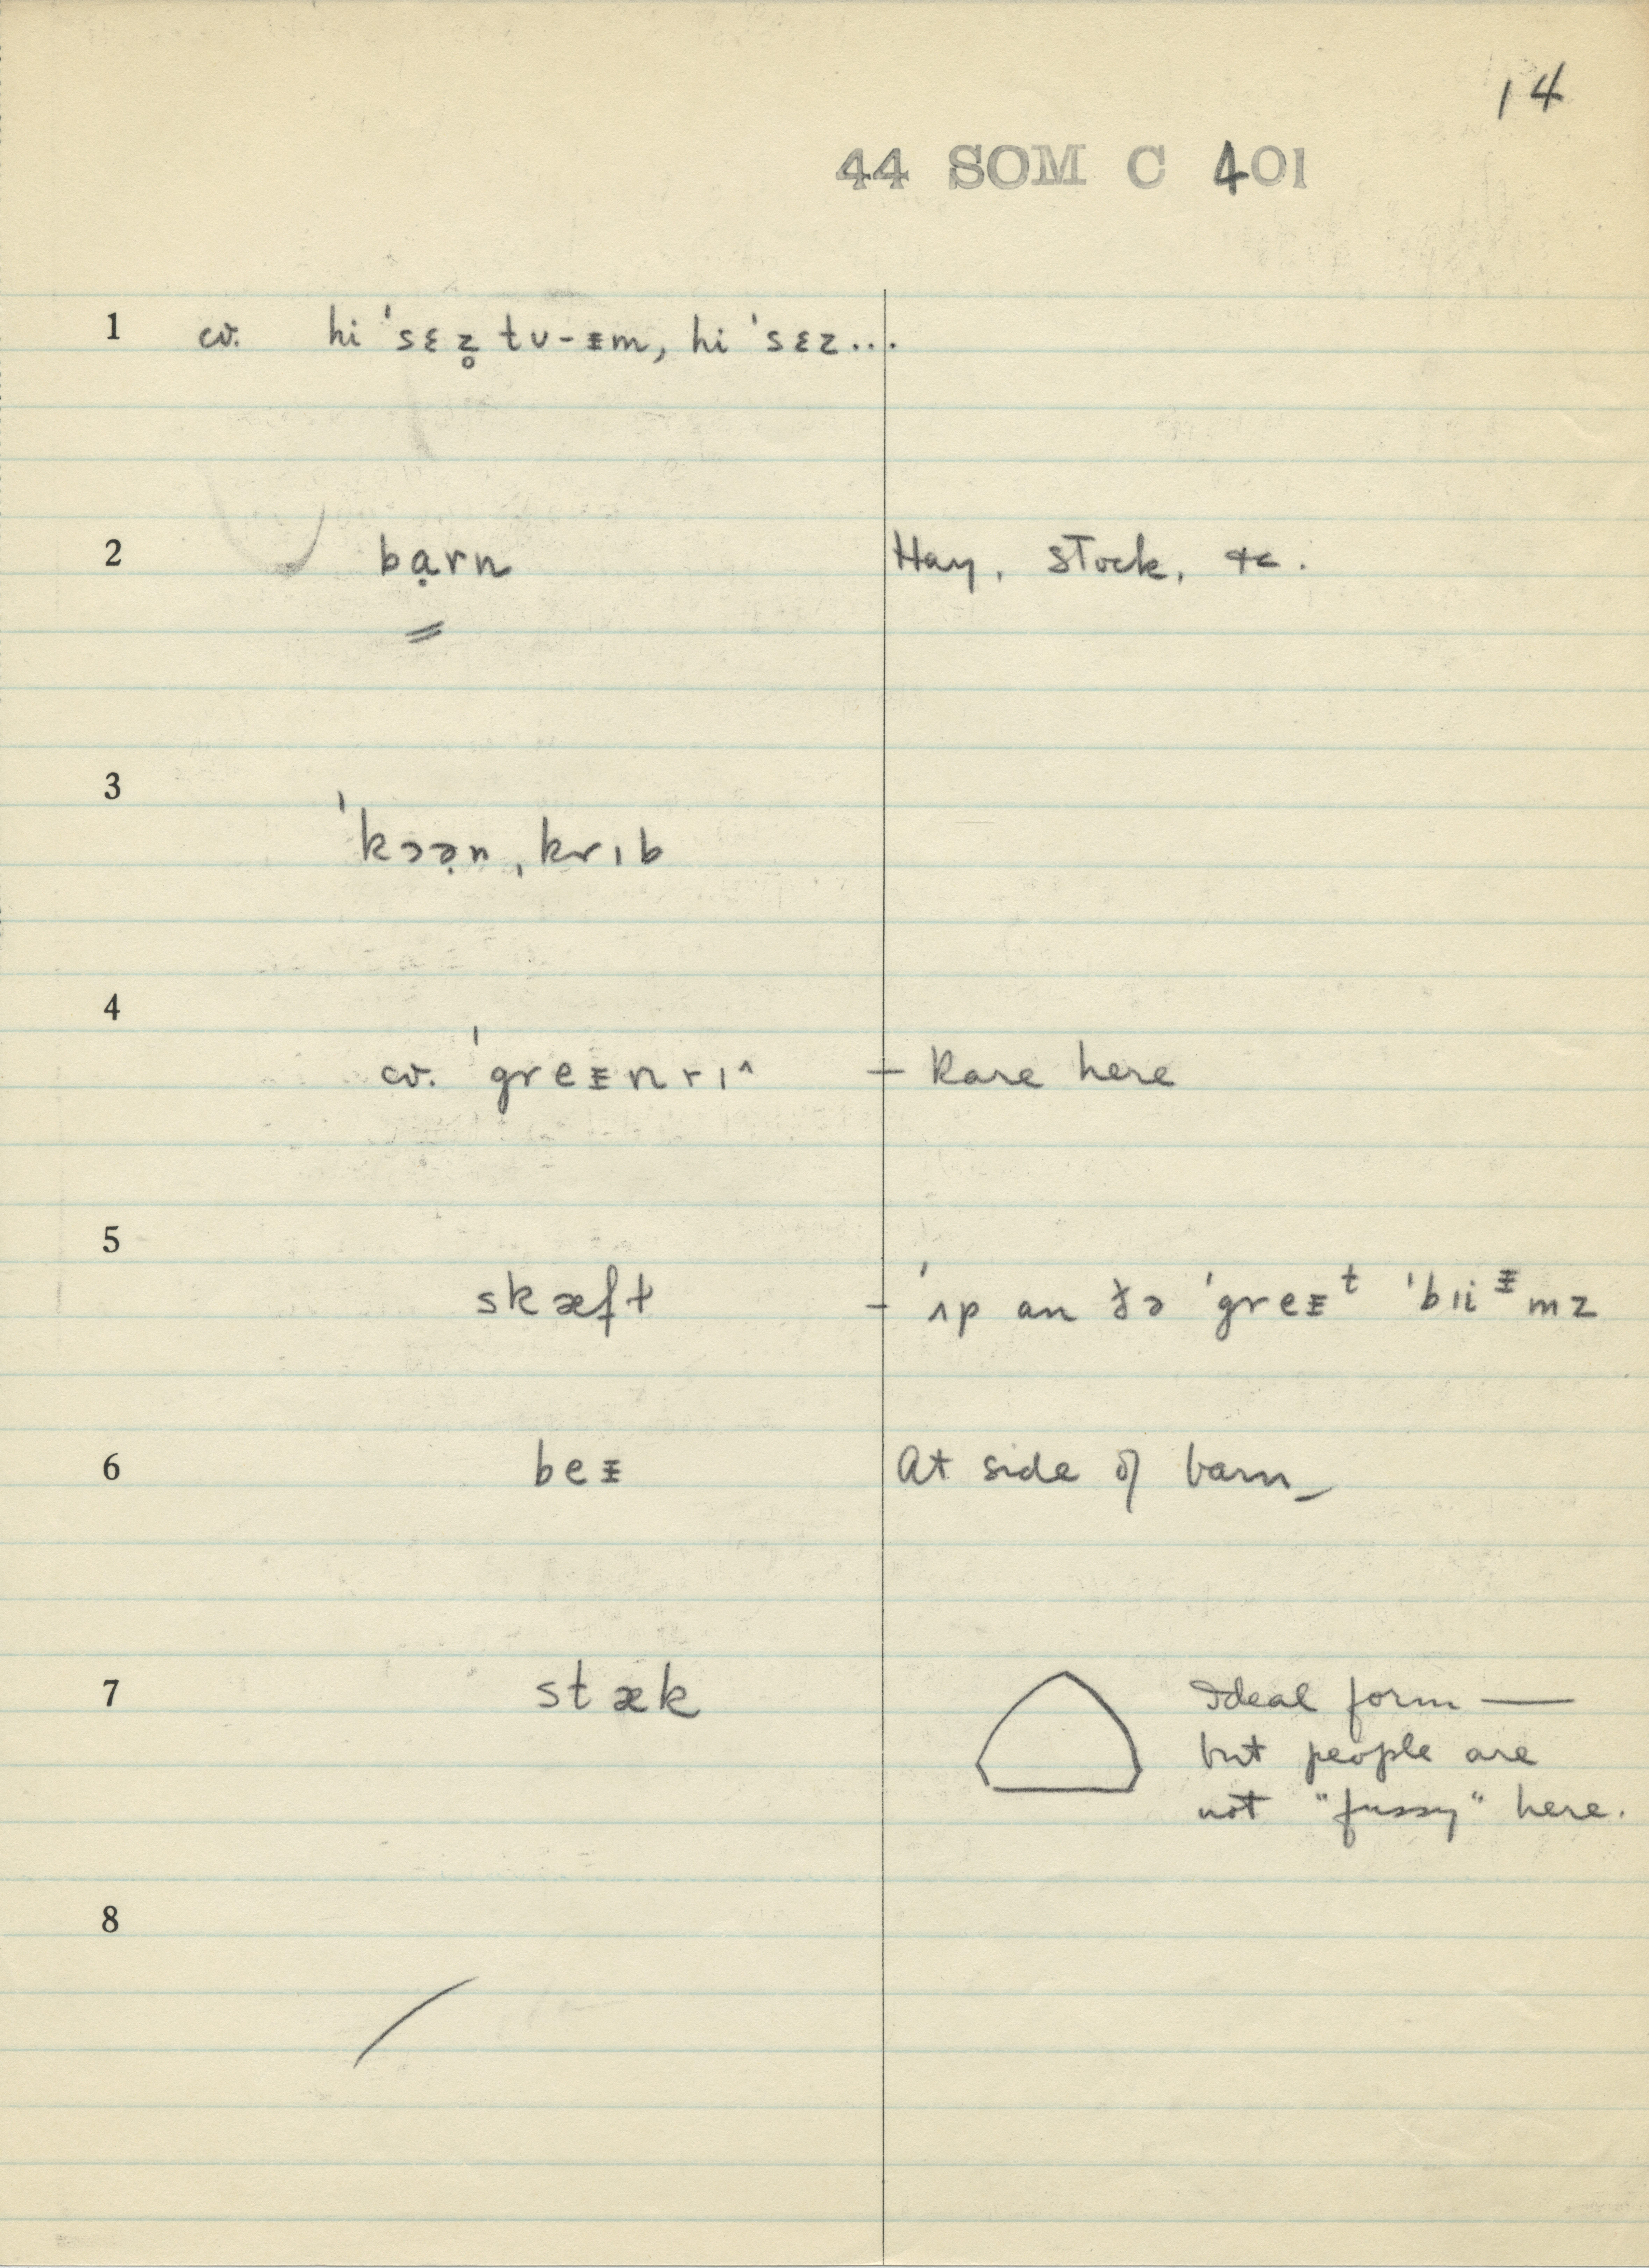 14
44 SOM C 401
1 cv. hi 'sɛz̥ tʊ-ᵻm, hi 'sɛz...
2 bạrn Hay, stock, &c.
3 'kɔə̣n ˌkrɪb
4 cv. 'greᵻnrɪ^ – Rare here
5 skæft – 'ʌp an ðə 'greᵻᵗ 'bɪiᵻmz
6 beᵻ At side of barn_
7 stæk Ideal form —
but people are
not "fussy" here.
8